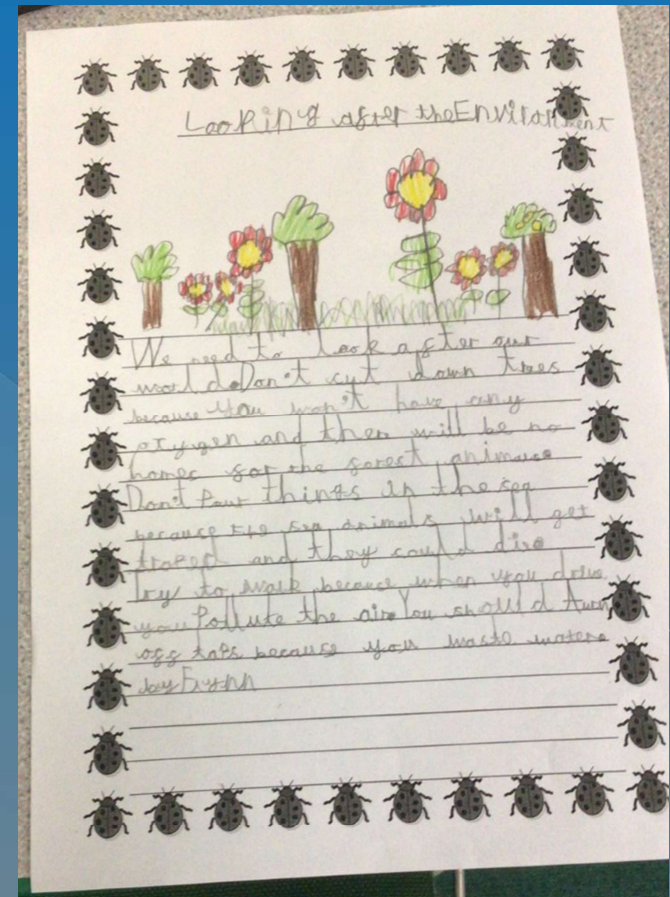 Looking after the Environment
We need to look after our
world. Don't cut down trees
because you won't have any
oxygen and then will be no
homes for the forest animals.
Don't Pour things in the sea
because the sea animals will get
traped and they could die.
Try to walk because when you drive
you Pollute the air. You should turn
off taps because you waste water.
by Erynn